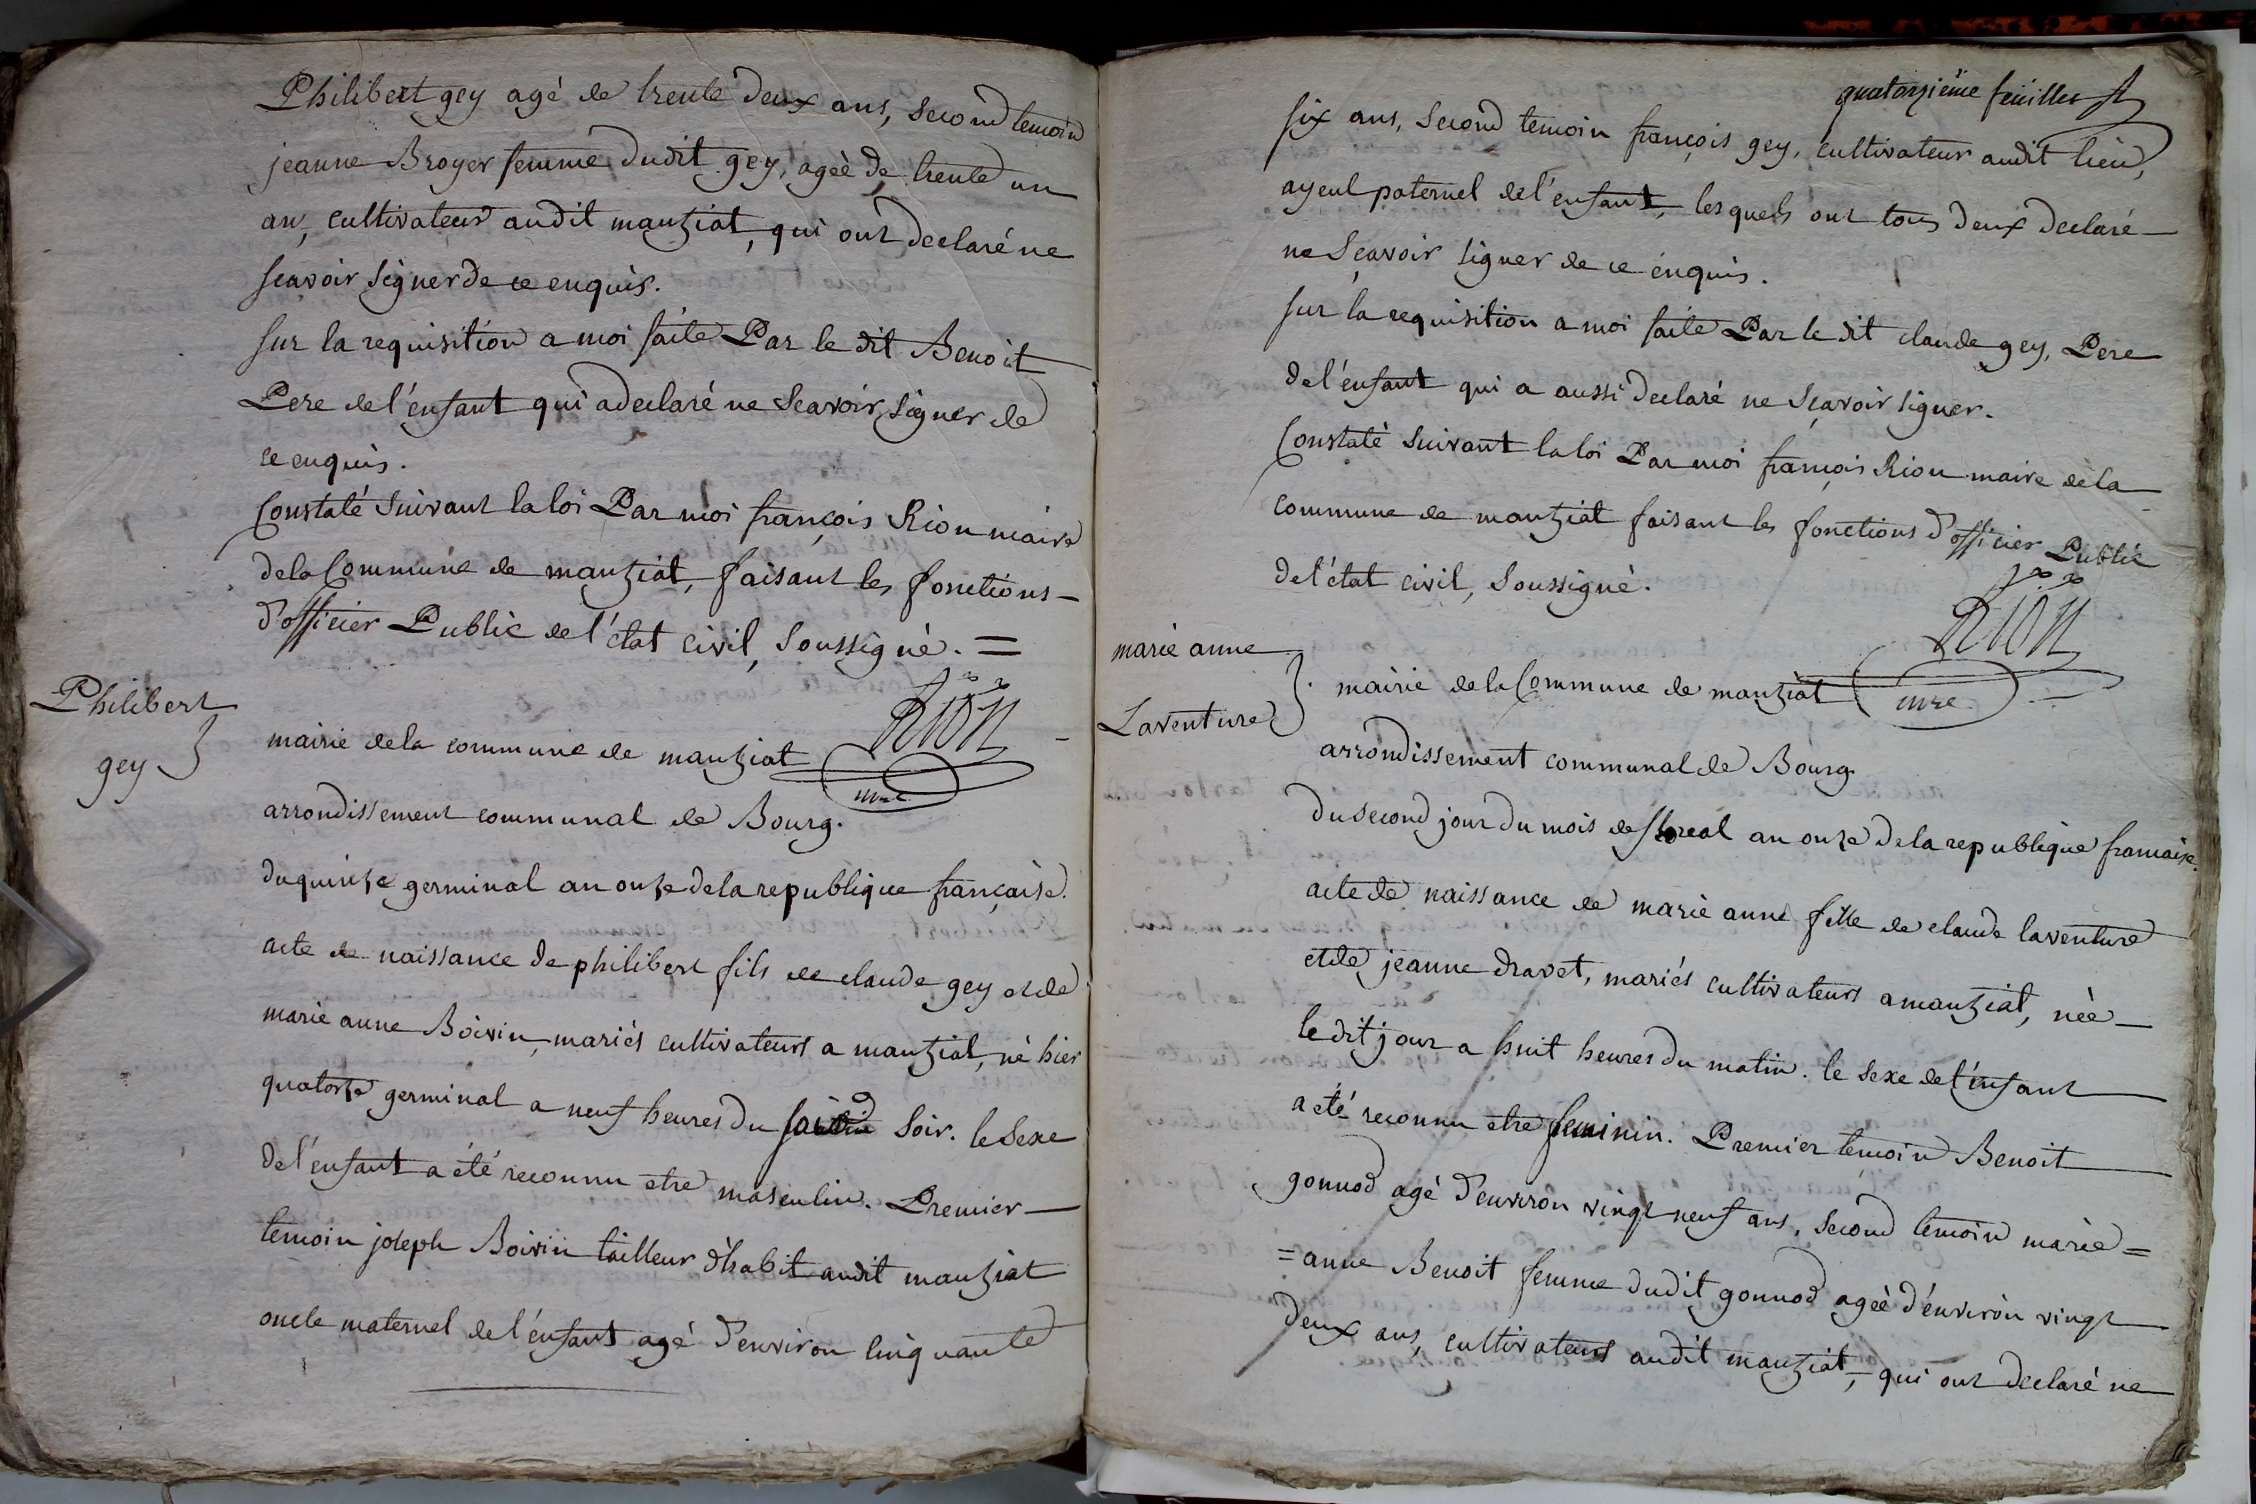 Philibert gey agé de trente deux ans, second temoin
jeanne Broyer femme dudit gey, ageè de trente un
an, cultivateur audit manziat, qui ont declaré ne
scavoir signer de ce enquis.
sur la requisition a moi faite Par le dit Benoit
Pere de l'enfant qui a declaré ne Scavoir signer de
ce enquis.
Constaté suivant la loi Par moi françois Rion maire
de la Commune de manziat, faisant les fonctions
d'officier Public de l'état civil, soussigné. =
Philibert
gey
RION
mairie de la commune de manziat
mre
arrondissement communal de Bourg.
du quinze germinal an onze de la republique française.
acte de naissance de philibert fils de claude gey et de
marie anne Boivin, mariés cultivateurs a manziat, né hier
quatorze germinal a neuf heures du soir. le Sexe
de l'enfant a été reconnu etre masculin. Premier
temoin joseph Boivin tailleur d'habit audit manziat
oncle maternel de l'enfant agé d'environ cinquante
quatorzième feuillet
six ans, second temoin françois gey, cultivateur audit lieu,
ayeul paternel de l'enfant, lesquels ont tous deux declaré
ne Sçavoir signer de ce enquis.
sur la requisition a moi faite Par le dit claude gey, Pere
de l'enfant qui a aussi declaré ne Sçavoir signer.
Constaté suivant la loi Par moi françois Rion maire de la
commune de manziat faisant les fonctions d'officier Public
de l'état civil, soussigné.
RION
marie anne
Laventure
mairie de la Commune de manziat
mre
arrondissement communal de Bourg
du second jour du mois de floreal an onze de la republique francaise.
acte de naissance de marie anne fille de claude laventure
et de jeanne dravet, mariés cultivateurs a manziat, née
le dit jour a huit heures du matin. le sexe de l'enfant
a été reconnu etre feminin. Premier temoin Benoit
gonnod agé d'environ vingt neuf ans, second temoin marie=
=anne Benoit femme dudit gonnod ageè d'environ vingt
deux ans, cultivateurs audit manziat, qui ont declaré ne